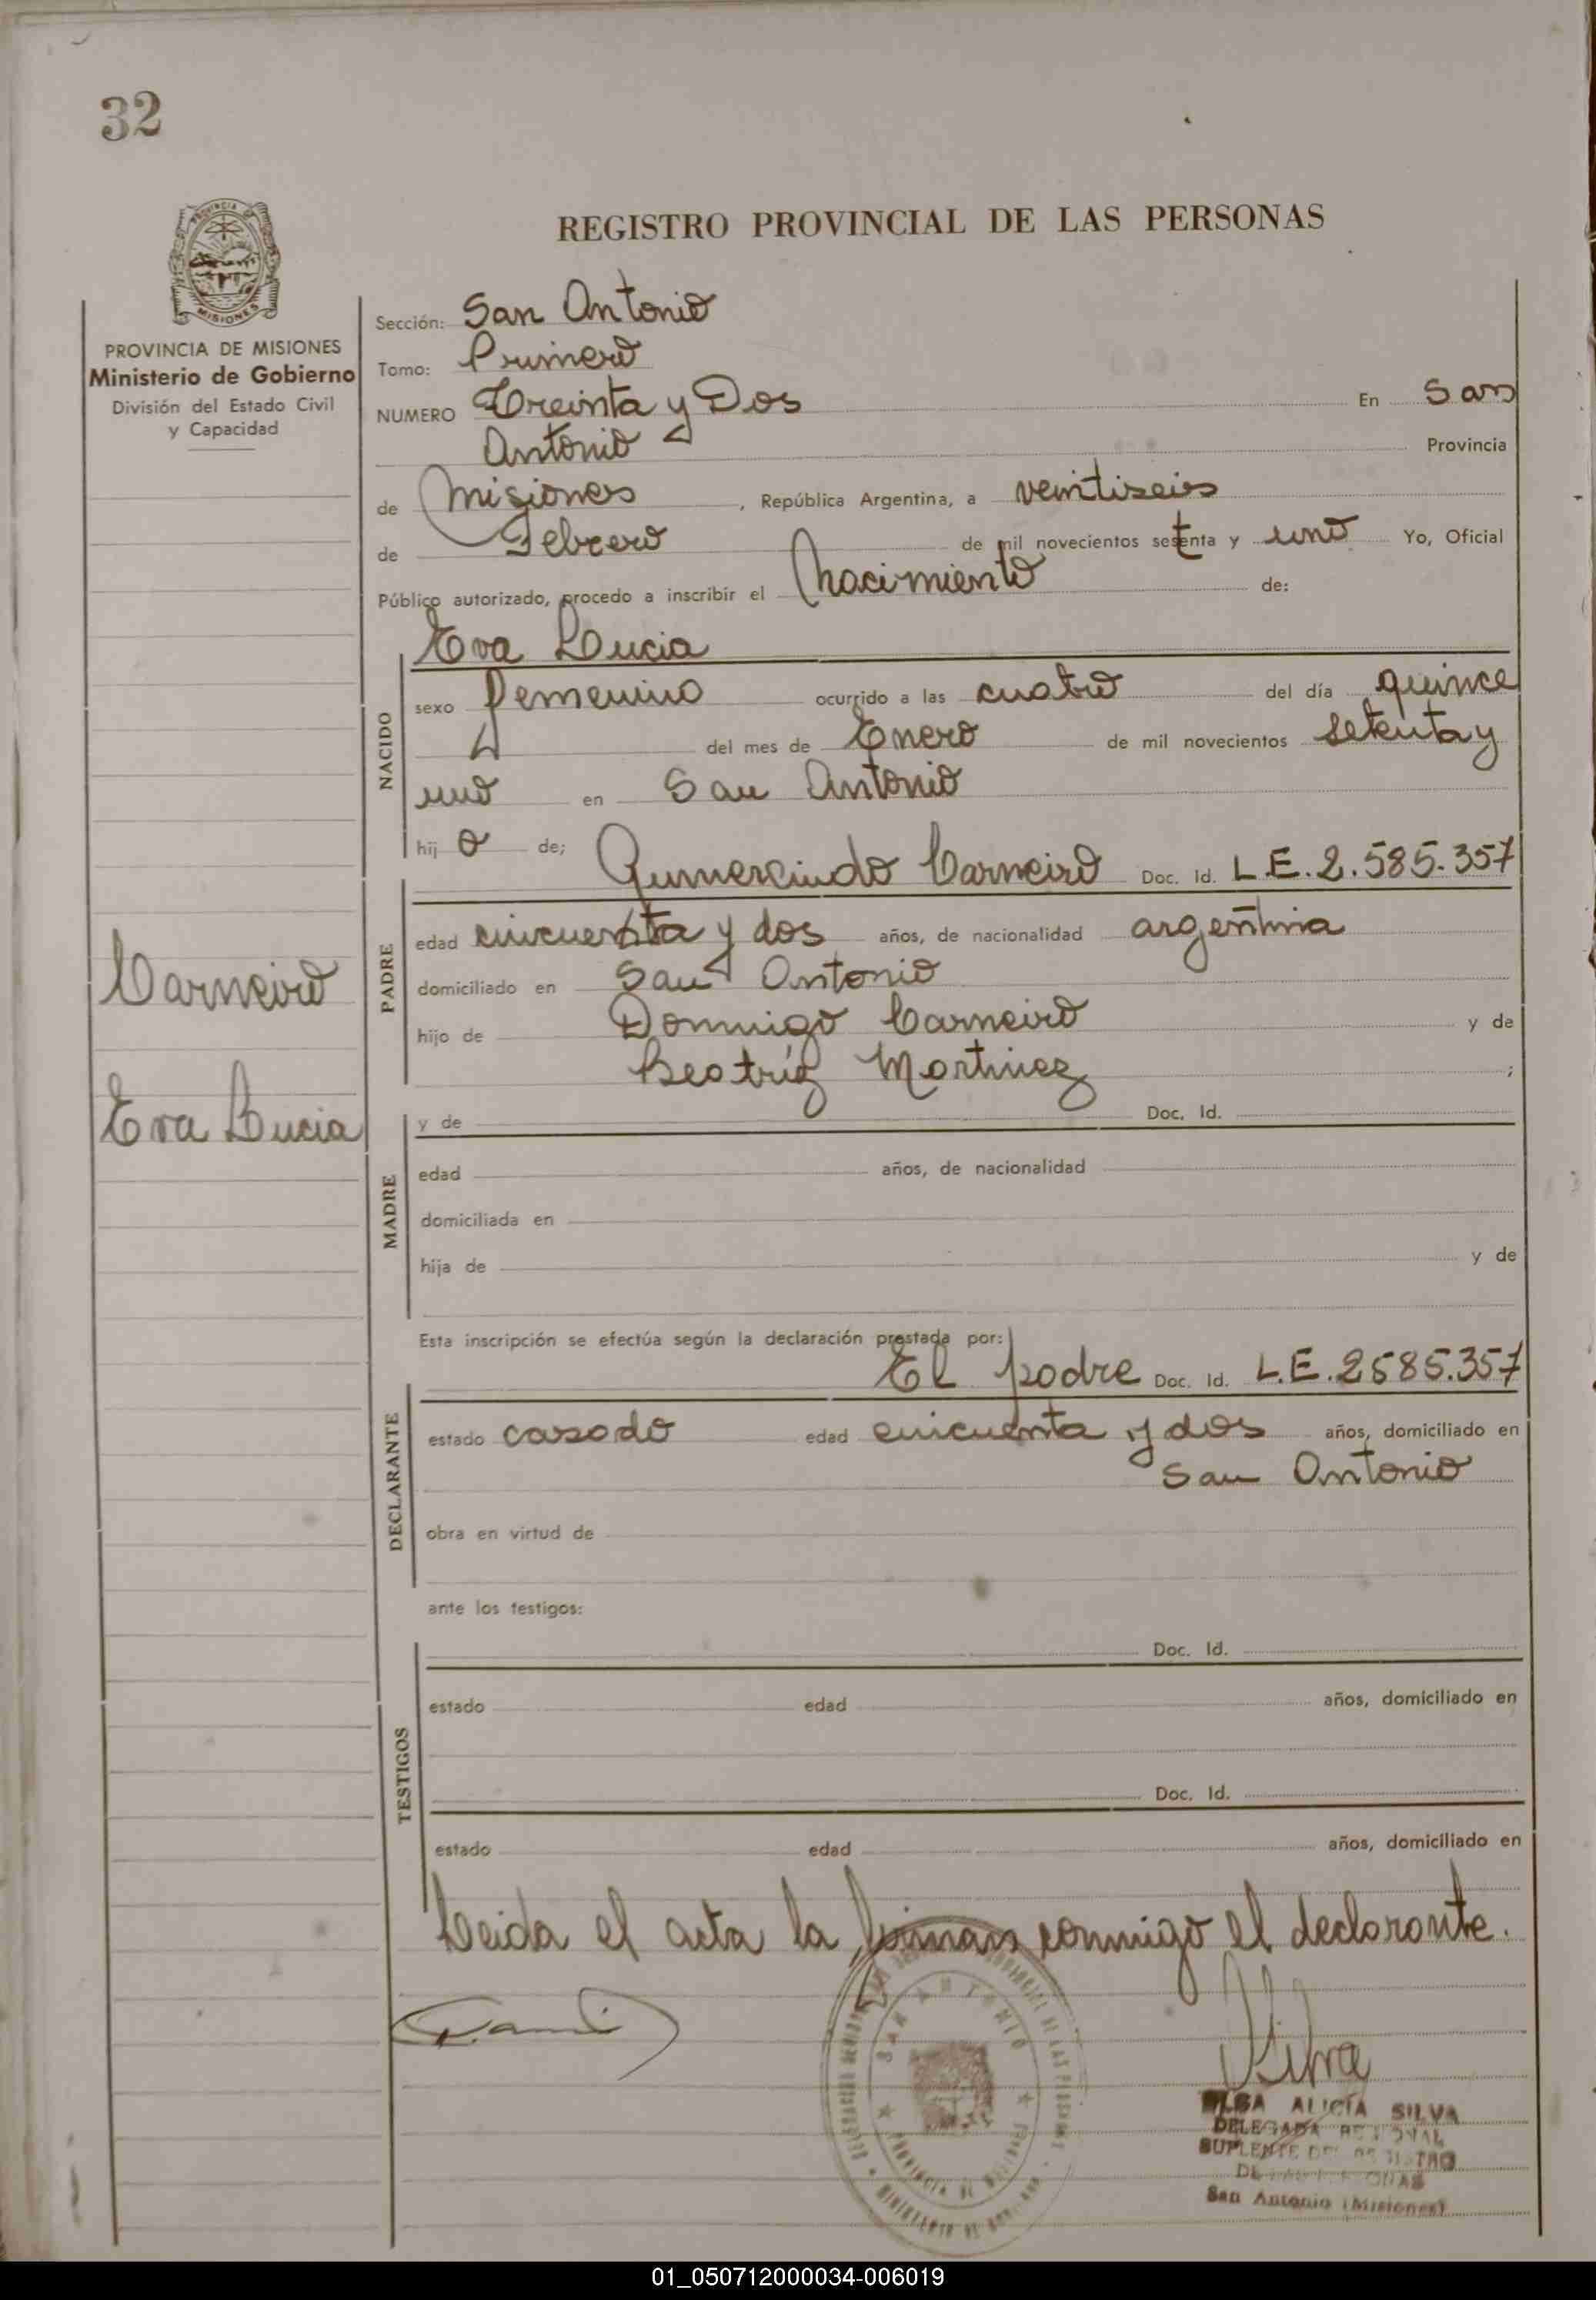 32
PROVINCIA DE MISIONES
PROVINCIA DE MISIONES
Ministerio de Gobierno
División del Estado Civil
y Capacidad
Carneiro
Eva Lucia
REGISTRO PROVINCIAL DE LAS PERSONAS
Sección: San Antonio
Tomo: Primero
NUMERO Treinta y Dos En San
Antonio Provincia
de Misiones, República Argentina, a veintiseis
de Febrero de mil novecientos setenta y uno Yo, Oficial
Público autorizado, procedo a inscribir el Nacimiento de:
Eva Lucia
NACIDO
sexo femenino ocurrido a las cuatro del día quince
del mes de Enero de mil novecientos setenta y
uno en San Antonio
hij a de; Gumercindo Carneiro Doc. Id. L.E. 2.585.357
PADRE
edad cincuenta y dos años, de nacionalidad argentina
domiciliado en San Antonio
hijo de Domingo Carneiro y de
Beatríz Martinez ;
y de Doc. Id.
MADRE
edad años, de nacionalidad
domiciliada en
hija de y de
Esta inscripción se efectúa según la declaración prestada por:
El padre Doc. Id. L.E. 2585.357
DECLARANTE
estado casado edad cincuenta y dos años, domiciliado en
San Antonio
obra en virtud de
ante los testigos:
Doc. Id.
TESTIGOS
estado edad años, domiciliado en
Doc. Id.
estado edad años, domiciliado en
Leida el acta la firman conmigo el declarante.
SAN ANTONIO
PROVINCIA DE MISIONES
Silva
ALICIA SILVA
DELEGADA REGIONAL
SUPLENTE DEL REGISTRO
DE LAS PERSONAS
San Antonio (Misiones)
01_050712000034-006019